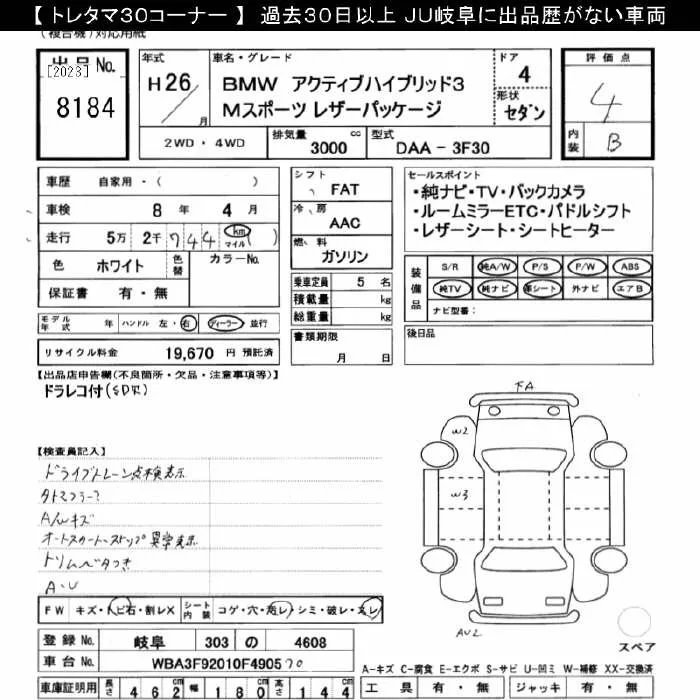 【 トレタマ30コーナー 】 過去30日以上 JU岐阜に出品歴がない車両
(複合機)対応用紙
出品No.
[2023]
8184
年式
H26/月
車名・グレード
BMW アクティブハイブリッド3
Mスポーツ レザーパッケージ
ドア
4
形状
セダン
評価点
4
内装
B
2WD・4WD
排気量
3000 cc
型式
DAA - 3F30
車歴 自家用・( )
車検 8年 4月
走行 5万 2千 744 km マイル ( )
色 ホワイト 色替 カラーNo.
保証書 有・無
シフト
FAT
冷房
AAC
燃料
ガソリン
乗車定員 5 名
積載量 kg
総重量 kg
書類期限
月 日
セールスポイント
・純ナビ・TV・バックカメラ
・ルームミラーETC・パドルシフト
・レザーシート・シートヒーター
装備品
S/R 純A/W P/S P/W ABS
純TV 純ナビ 革シート 外ナビ エアB
ナビ型番:
後日品
モデル年式 年 ハンドル 左・右 ディーラー 並行
リサイクル料金 19,670 円 預託済
【出品店申告欄(不良箇所・欠品・注意事項等)】
ドラレコ付(SDR)
【検査員記入】
ドライブトレーン点検表示
A/wキズ
オートスタートストップ異常表示
トリムベタつき
A・U
FA
W2
W3
AU2
スペア
FW キズ・トビ石・割レX シート内装 コゲ・穴・スレ・シミ・破レ・スレ
登録No. 岐阜 303 の 4608
車台No. WBA3F92010F490570
A-キズ C-腐食 E-エクボ S-サビ U-凹ミ W-補修 XX-交換済
車庫証明用 長さ 462cm 幅 180cm 高さ 144cm
工具 有・無 ジャッキ 有・無